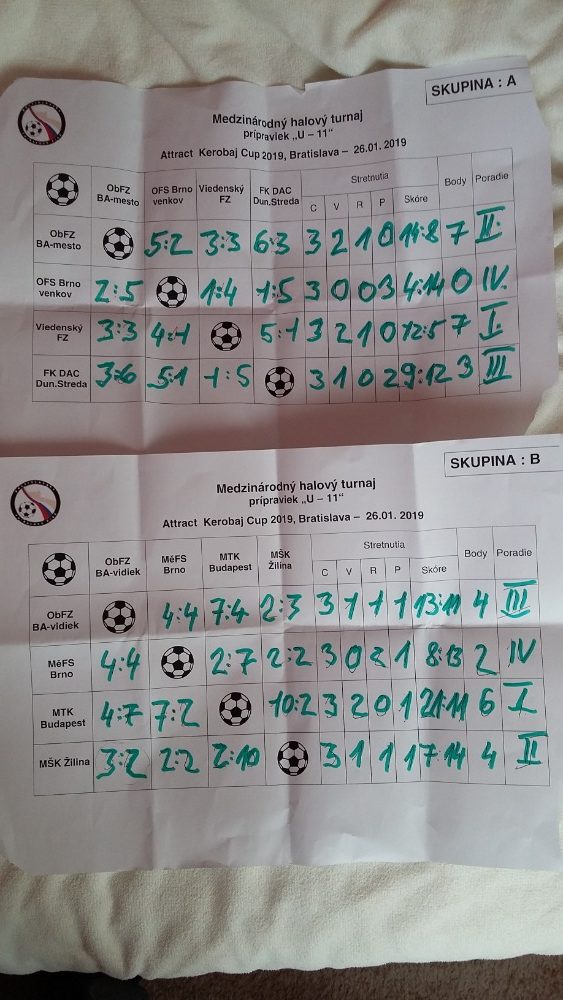 SKUPINA : A
Medzinárodný halový turnaj
prípraviek „U – 11“
Attract Kerobaj Cup 2019, Bratislava – 26.01. 2019
ObFZ BA-mesto OFS Brno venkov Viedenský FZ FK DAC Dun.Streda Stretnutia Body Poradie
C V R P Skóre
ObFZ BA-mesto 5:2 3:3 6:3 3 2 1 0 14:8 7 II.
OFS Brno venkov 2:5 1:4 1:5 3 0 0 3 4:14 0 IV.
Viedenský FZ 3:3 4:1 5:1 3 2 1 0 12:5 7 I.
FK DAC Dun.Streda 3:6 5:1 1:5 3 1 0 2 9:12 3 III
SKUPINA : B
Medzinárodný halový turnaj
prípraviek „U – 11“
Attract Kerobaj Cup 2019, Bratislava – 26.01. 2019
ObFZ BA-vidiek MěFS Brno MTK Budapest MŠK Žilina Stretnutia Body Poradie
C V R P Skóre
ObFZ BA-vidiek 4:4 7:4 2:3 3 1 1 1 13:11 4 III
MěFS Brno 4:4 2:7 2:2 3 0 2 1 8:13 2 IV
MTK Budapest 4:7 7:2 10:2 3 2 0 1 21:11 6 I
MŠK Žilina 3:2 2:2 2:10 3 1 1 1 7:14 4 II